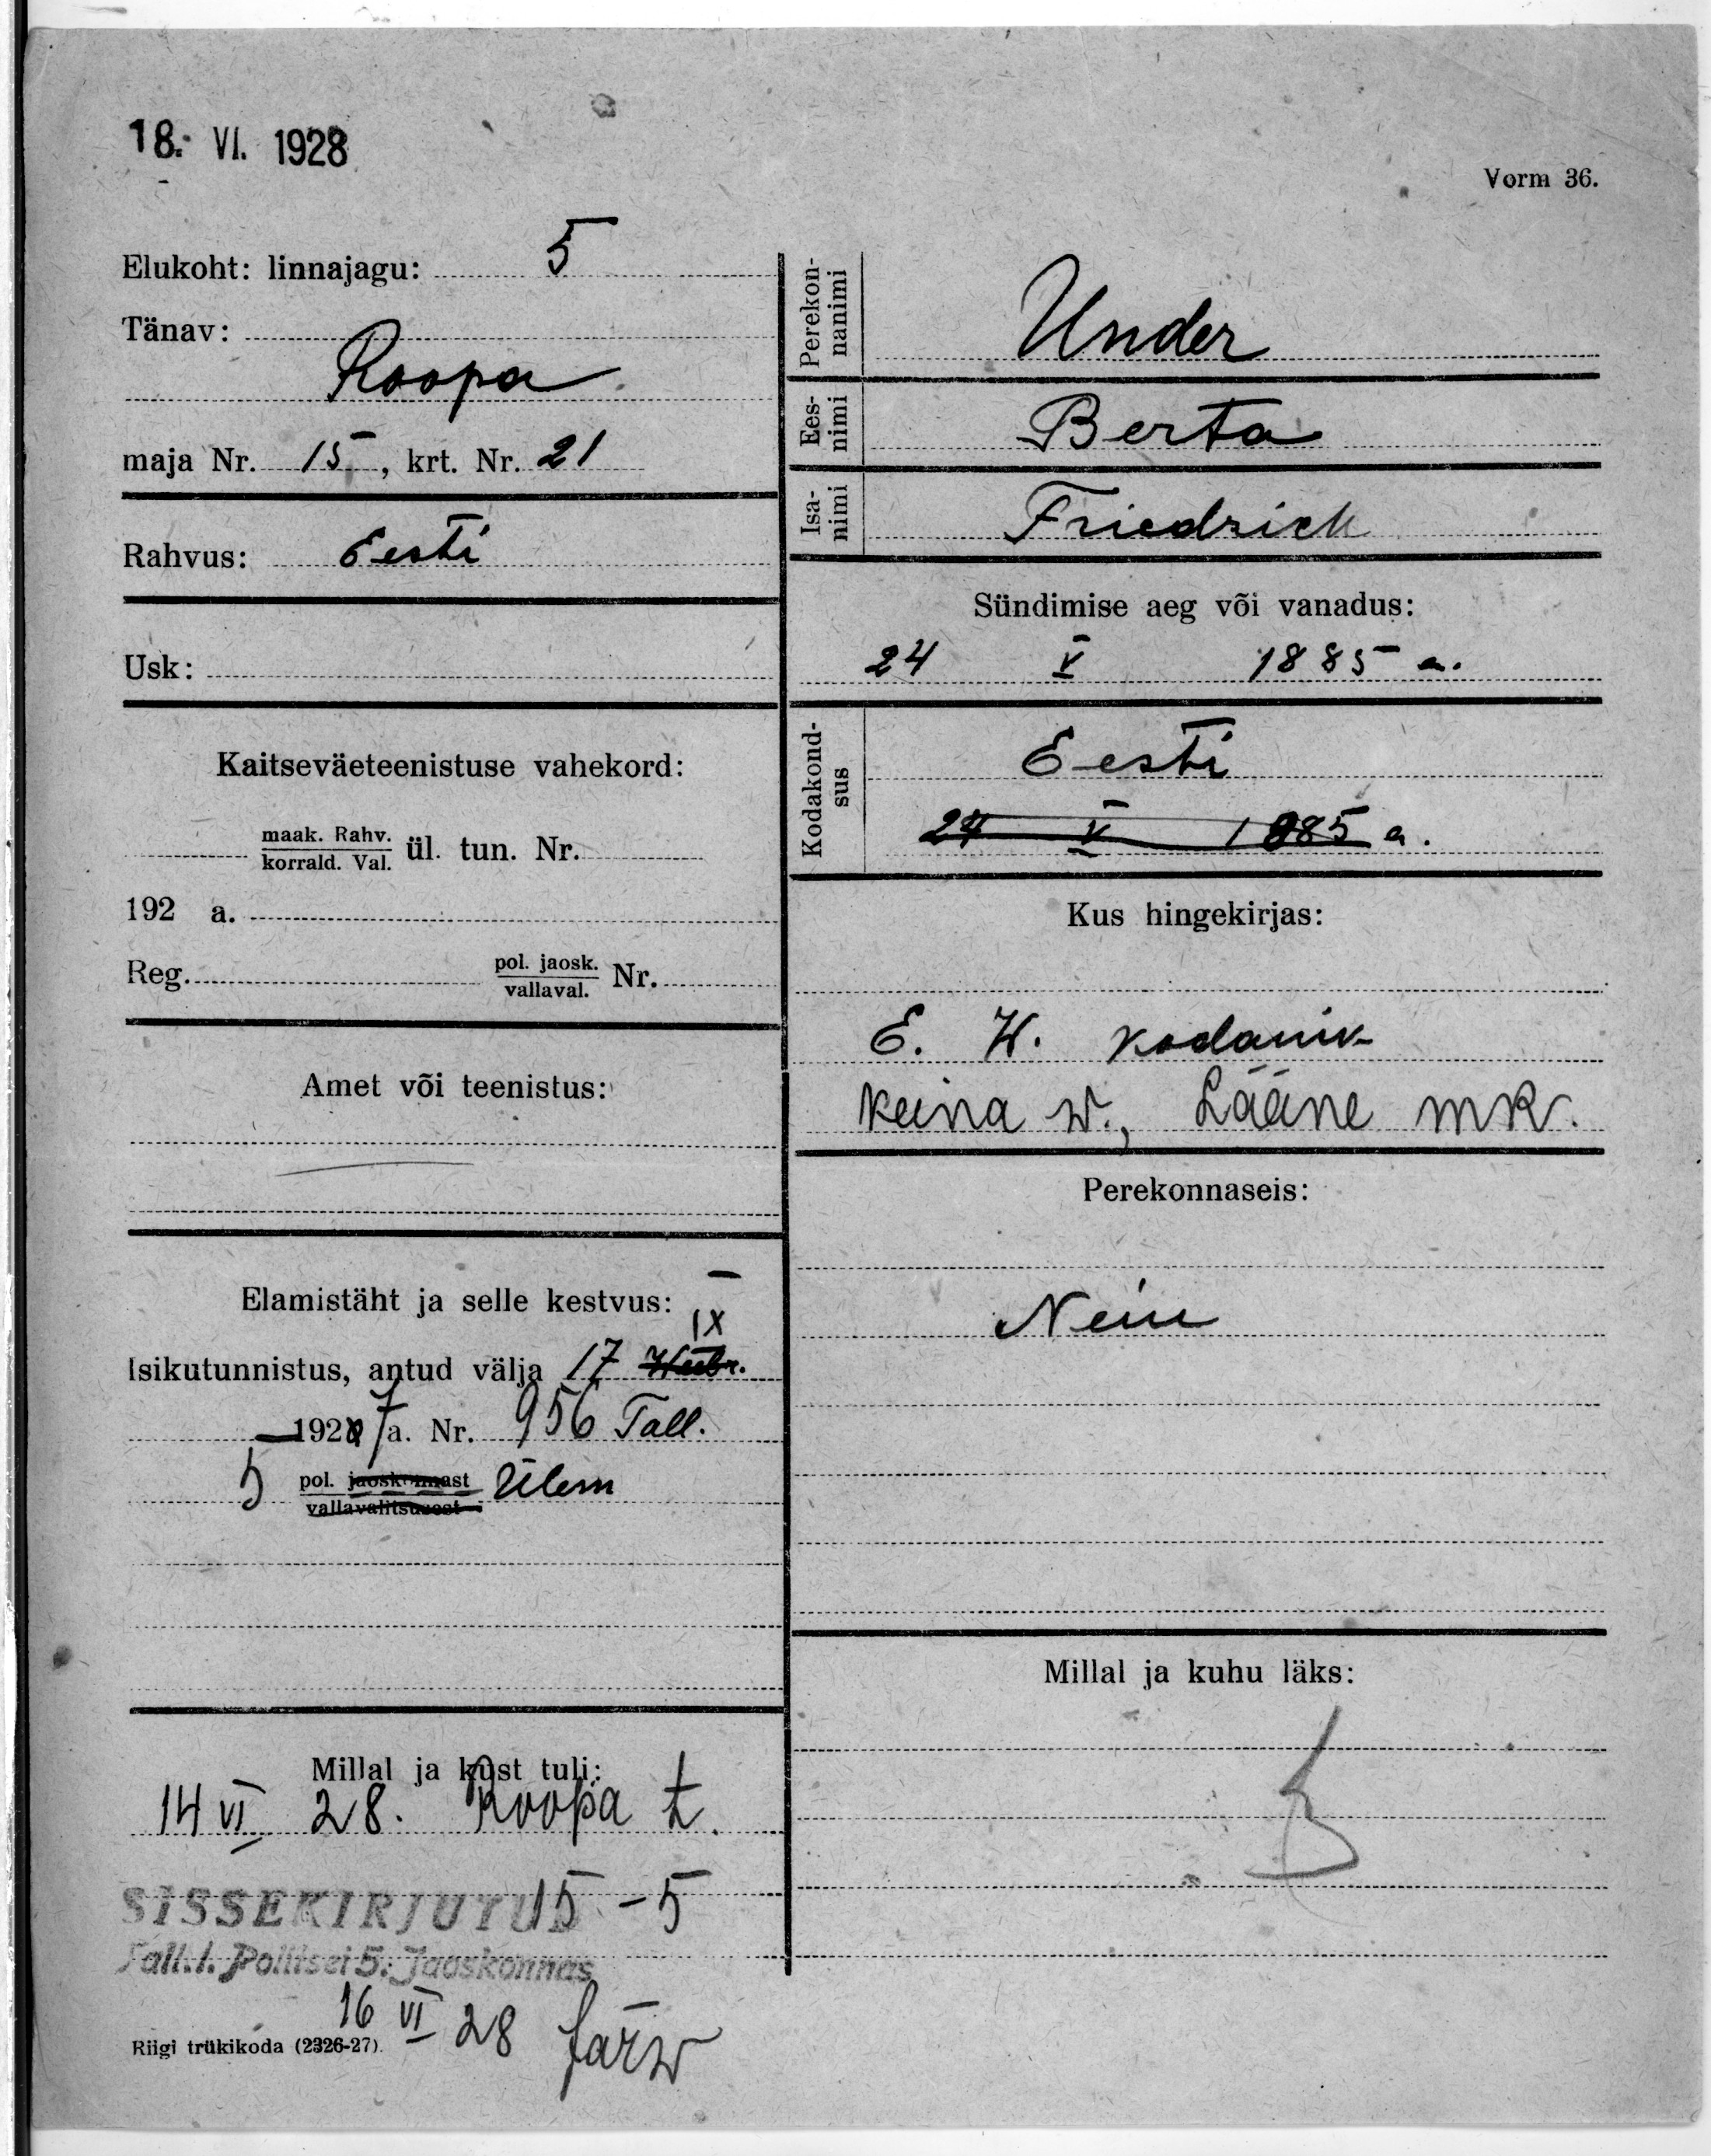 18. VI. 1928
Vorm 36.
Elukoht: linnajagu: 5
Tänav:
Roopa
maja Nr. 15, krt. Nr. 21
Rahvus: Eesti
Usk:
Kaitseväeteenistuse vahekord:
maak. Rahv.
korrald. Val. ül. tun. Nr.
192 a.
Reg. pol. jaosk.
vallaval. Nr.
Amet või teenistus:
Elamistäht ja selle kestvus:
IX
Isikutunnistus, antud välja 17
1927 a. Nr. 956 Tall.
5 pol. jaoskonnast Ülem
vallavalitsusest
Millal ja kust tuli:
14 VI 28. Roopa t.
15-5
SISSEKIRJUTUD
Tall.l. Politsei 5. Jaoskonnas
16 VI 28 Järw
Riigi trükikoda (2326-27).
Perekon-
nanimi
Under
Ees-
nimi
Berta
Isa-
nimi
Friedrich
Sündimise aeg või vanadus:
24 V 1885 a.
Kodakond-
sus
Eesti
24 V 1885 a.
Kus hingekirjas:
E. W. kodanik
Keina w., Lääne mk.
Perekonnaseis:
Neiu
Millal ja kuhu läks: